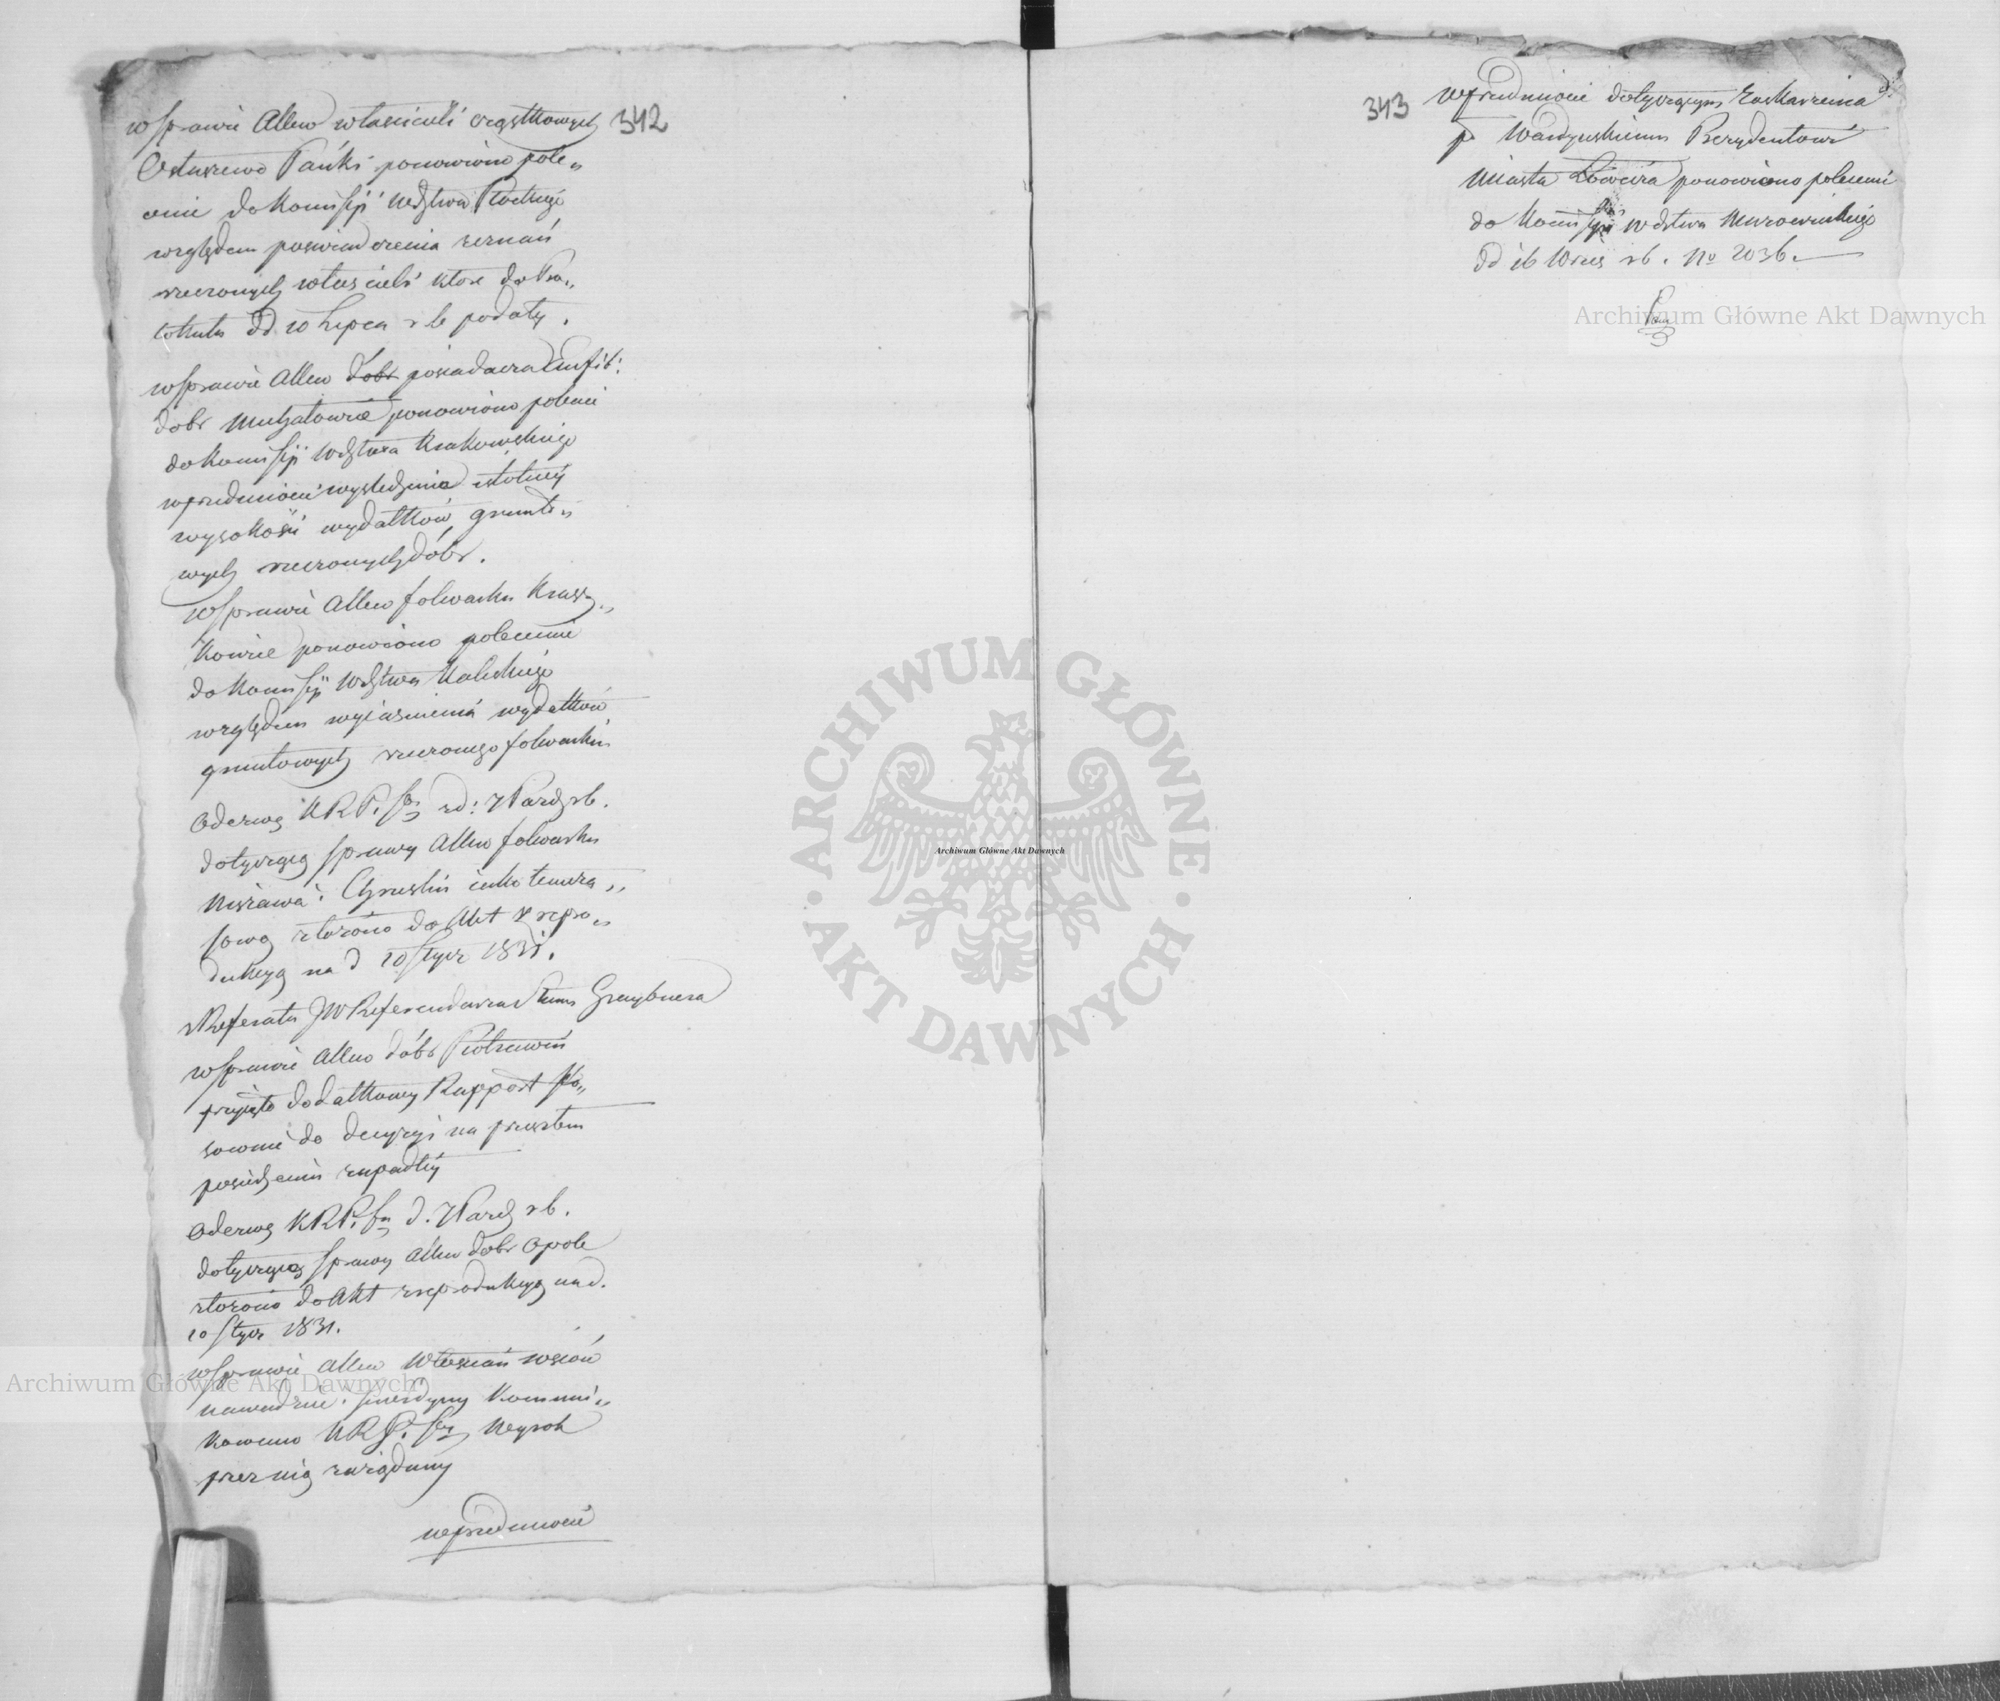 342
w Sprawie Allew właścicieli cząstkowych
Ostaszewo Pańki ponowiono pole„
cenie do Kommissji Wdztwa Płockiego
względem poswiadczenia zeznań
rzeczonych właścicieli które do Pro„
tokułu dd 10 Lipca r b podały.
w Sprawie Allew dobr posiadacza Emfit:
dobr ponowiono polecenie
do Kommissji Wdztwa Krakowskiego
w przedmiocie wysledzenia istotnéj
wysokości wydatków grunto„
wych rzeczonych dóbr.
w Sprawie Allew folwarku Krasz„
kowice ponowiono polecenie
do Kommissji Wdztwa Kaliskiego
względem wyiasnienia wydatków
gruntowych rzeczonego folwarku
Odezwę KRP. Sk: zd: 7 Paźdz r b.
dotyczącą sprawy Allew folwarku
i Chruslin iako temcza„
sową złożono do Akt z repro„
dukcyą na d 10 Stycz 1831.
z Referatu JW Referendarza Stanu Graybnera
w Sprawie Allew dóbr Piotrawin
przyięto dodatkowy Rapport sto„
sownie do decyzyi na przeszłem
posiedzeniu zapadłéj
Odezwę KRP. Sk d. 7 Paźdz r b.
dotyczącą sprawy Allew dobr Opole
złożono do Akt z reprodukcyą na d.
10 Stycz 1831.
w Sprawie Allew Włoscian wsiów
i Kommuni„
kowano KRP. Sk Wyrok
przez nią zażądany
w przedmiocie
343
w przedmiocie dotyczącym zaskarzenia
p Prezydentowi
Miasta Łowicza ponowiono polecenie
do Kommissji Wdztwa Mazowieckiego
dd 16 Wrzes r b. No 2036.
Archiwum Główne Akt Dawnych
ARCHIWUM GŁÓWNE · AKT DAWNYCH ·
Archiwum Główne Akt Dawnych
Archiwum Główne Akt Dawnych